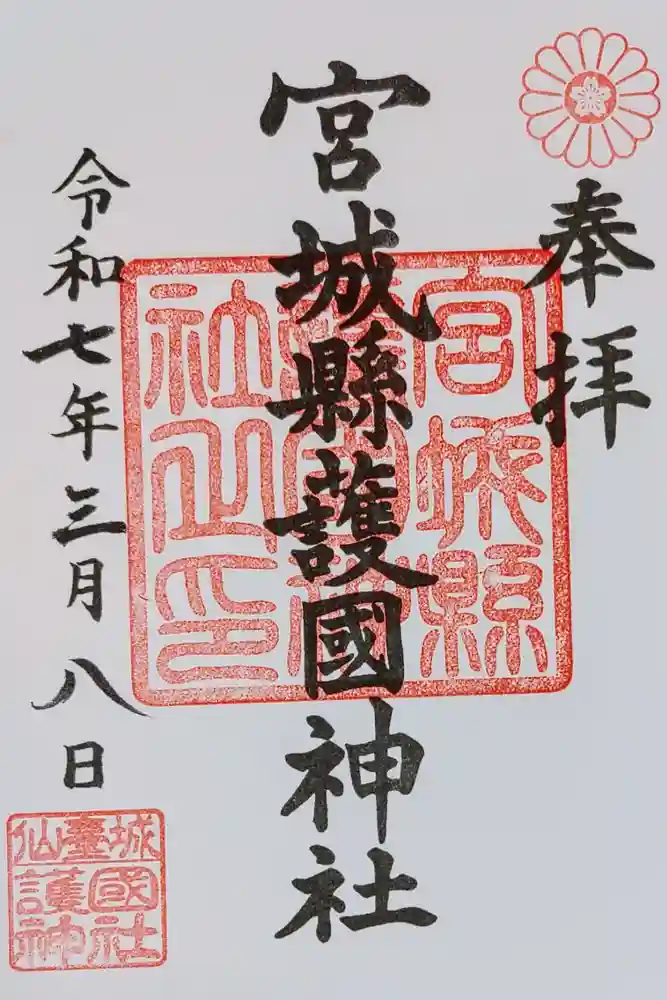 奉拝
宮城縣護國神社
令和七年三月八日
宮城縣
護國神
社之印
仙臺城
護國
神社